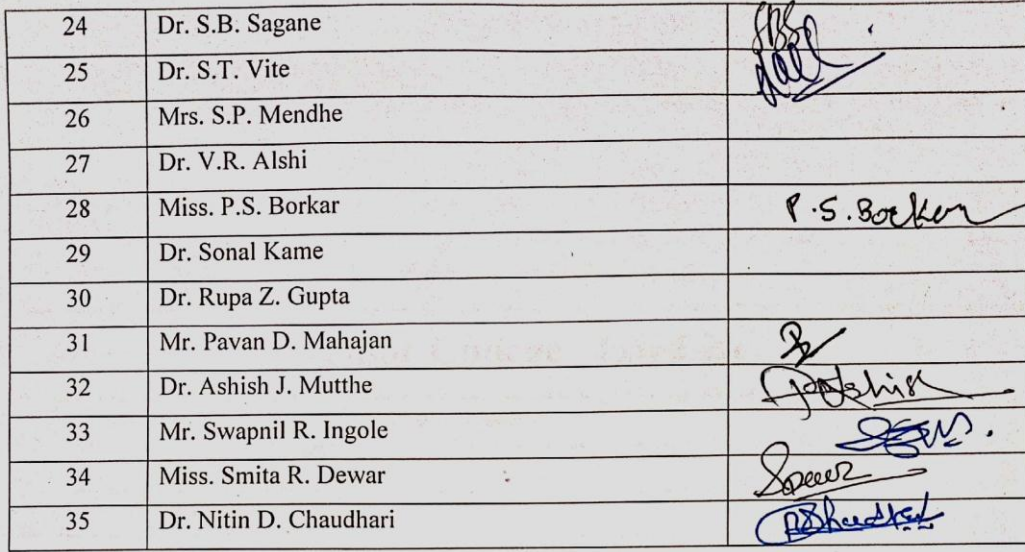 24 Dr. S.B. Sagane
25 Dr. S.T. Vite
26 Mrs. S.P. Mendhe
27 Dr. V.R. Alshi
28 Miss. P.S. Borkar P.S.Borkar
29 Dr. Sonal Kame
30 Dr. Rupa Z. Gupta
31 Mr. Pavan D. Mahajan
32 Dr. Ashish J. Mutthe
33 Mr. Swapnil R. Ingole
34 Miss. Smita R. Dewar
35 Dr. Nitin D. Chaudhari